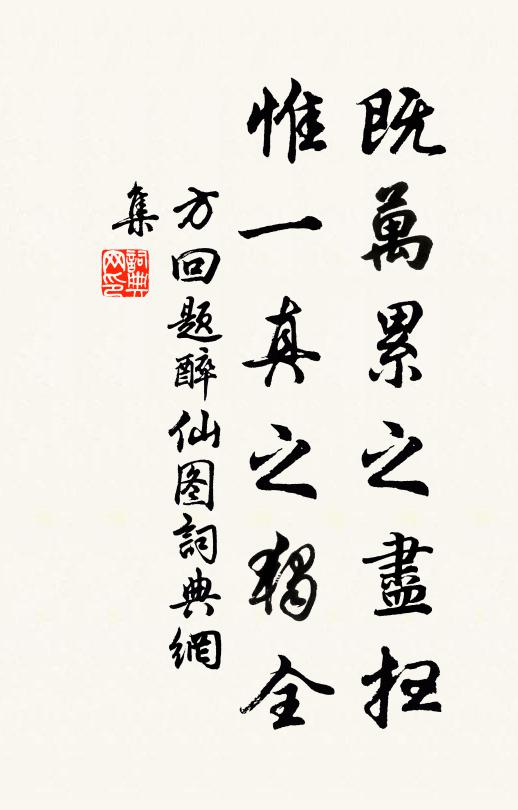 既萬累之盡扫
惟一真之獨全
方回题醉仙图詞典網
集
詞典网印